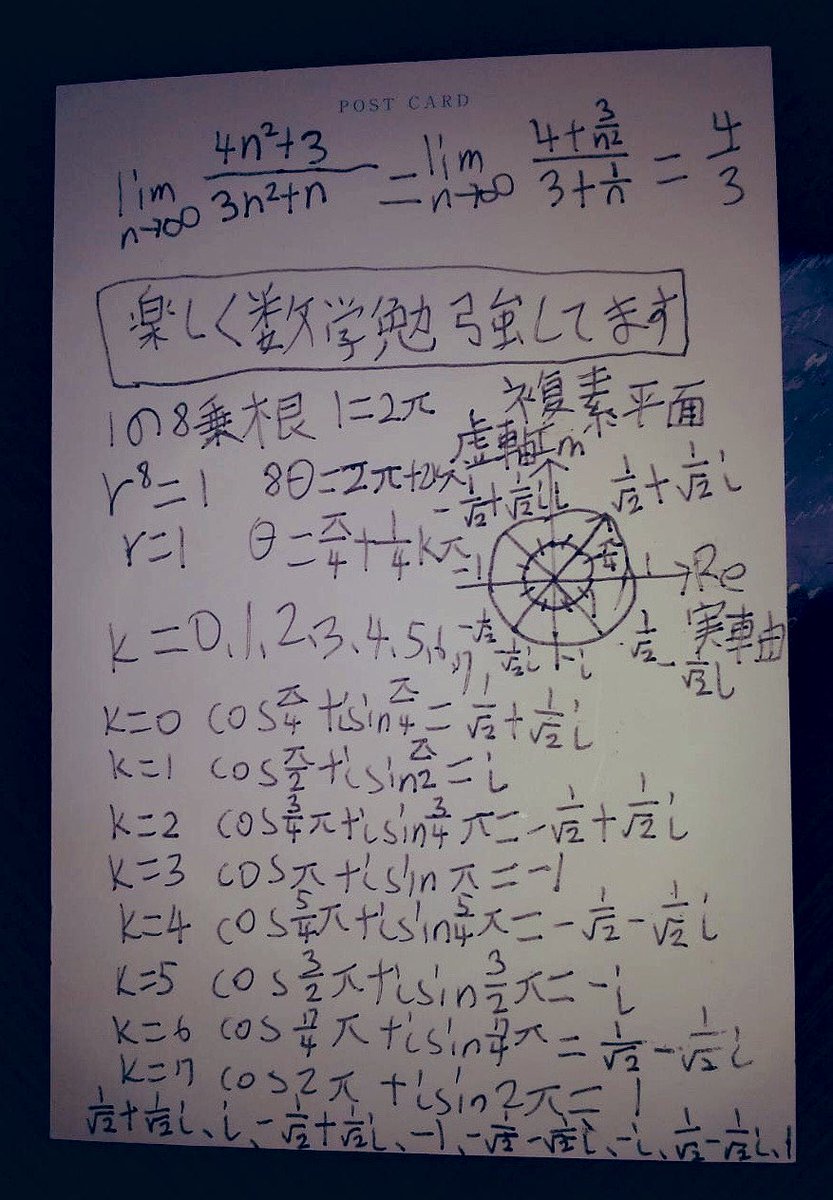 POST CARD
lim n→∞ (4n²+3)/(3n²+n) = lim n→∞ (4+3/n²)/(3+1/n) = 4/3
楽しく数学勉強してます
1の8乗根 1=2π 複素平面
虚軸Im
r⁸=1 8θ=2π+2kπ -1/√2+1/√2i i 1/√2+1/√2i
r=1 θ=π/4+1/4kπ -1 π/4 1 Re
実軸
k=0、1、2、3、4、5、6、7 -1/√2-1/√2i -i 1/√2-1/√2i
k=0 cosπ/4+isinπ/4=1/√2+1/√2i
k=1 cosπ/2+isinπ/2=i
k=2 cos3/4π+isin3/4π=-1/√2+1/√2i
k=3 cosπ+isinπ=-1
k=4 cos5/4π+isin5/4π=-1/√2-1/√2i
k=5 cos3/2π+isin3/2π=-i
k=6 cos7/4π+isin7/4π=1/√2-1/√2i
k=7 cos2π+isin2π=1
1/√2+1/√2i、i、-1/√2+1/√2i、-1、-1/√2-1/√2i、-i、1/√2-1/√2i、1